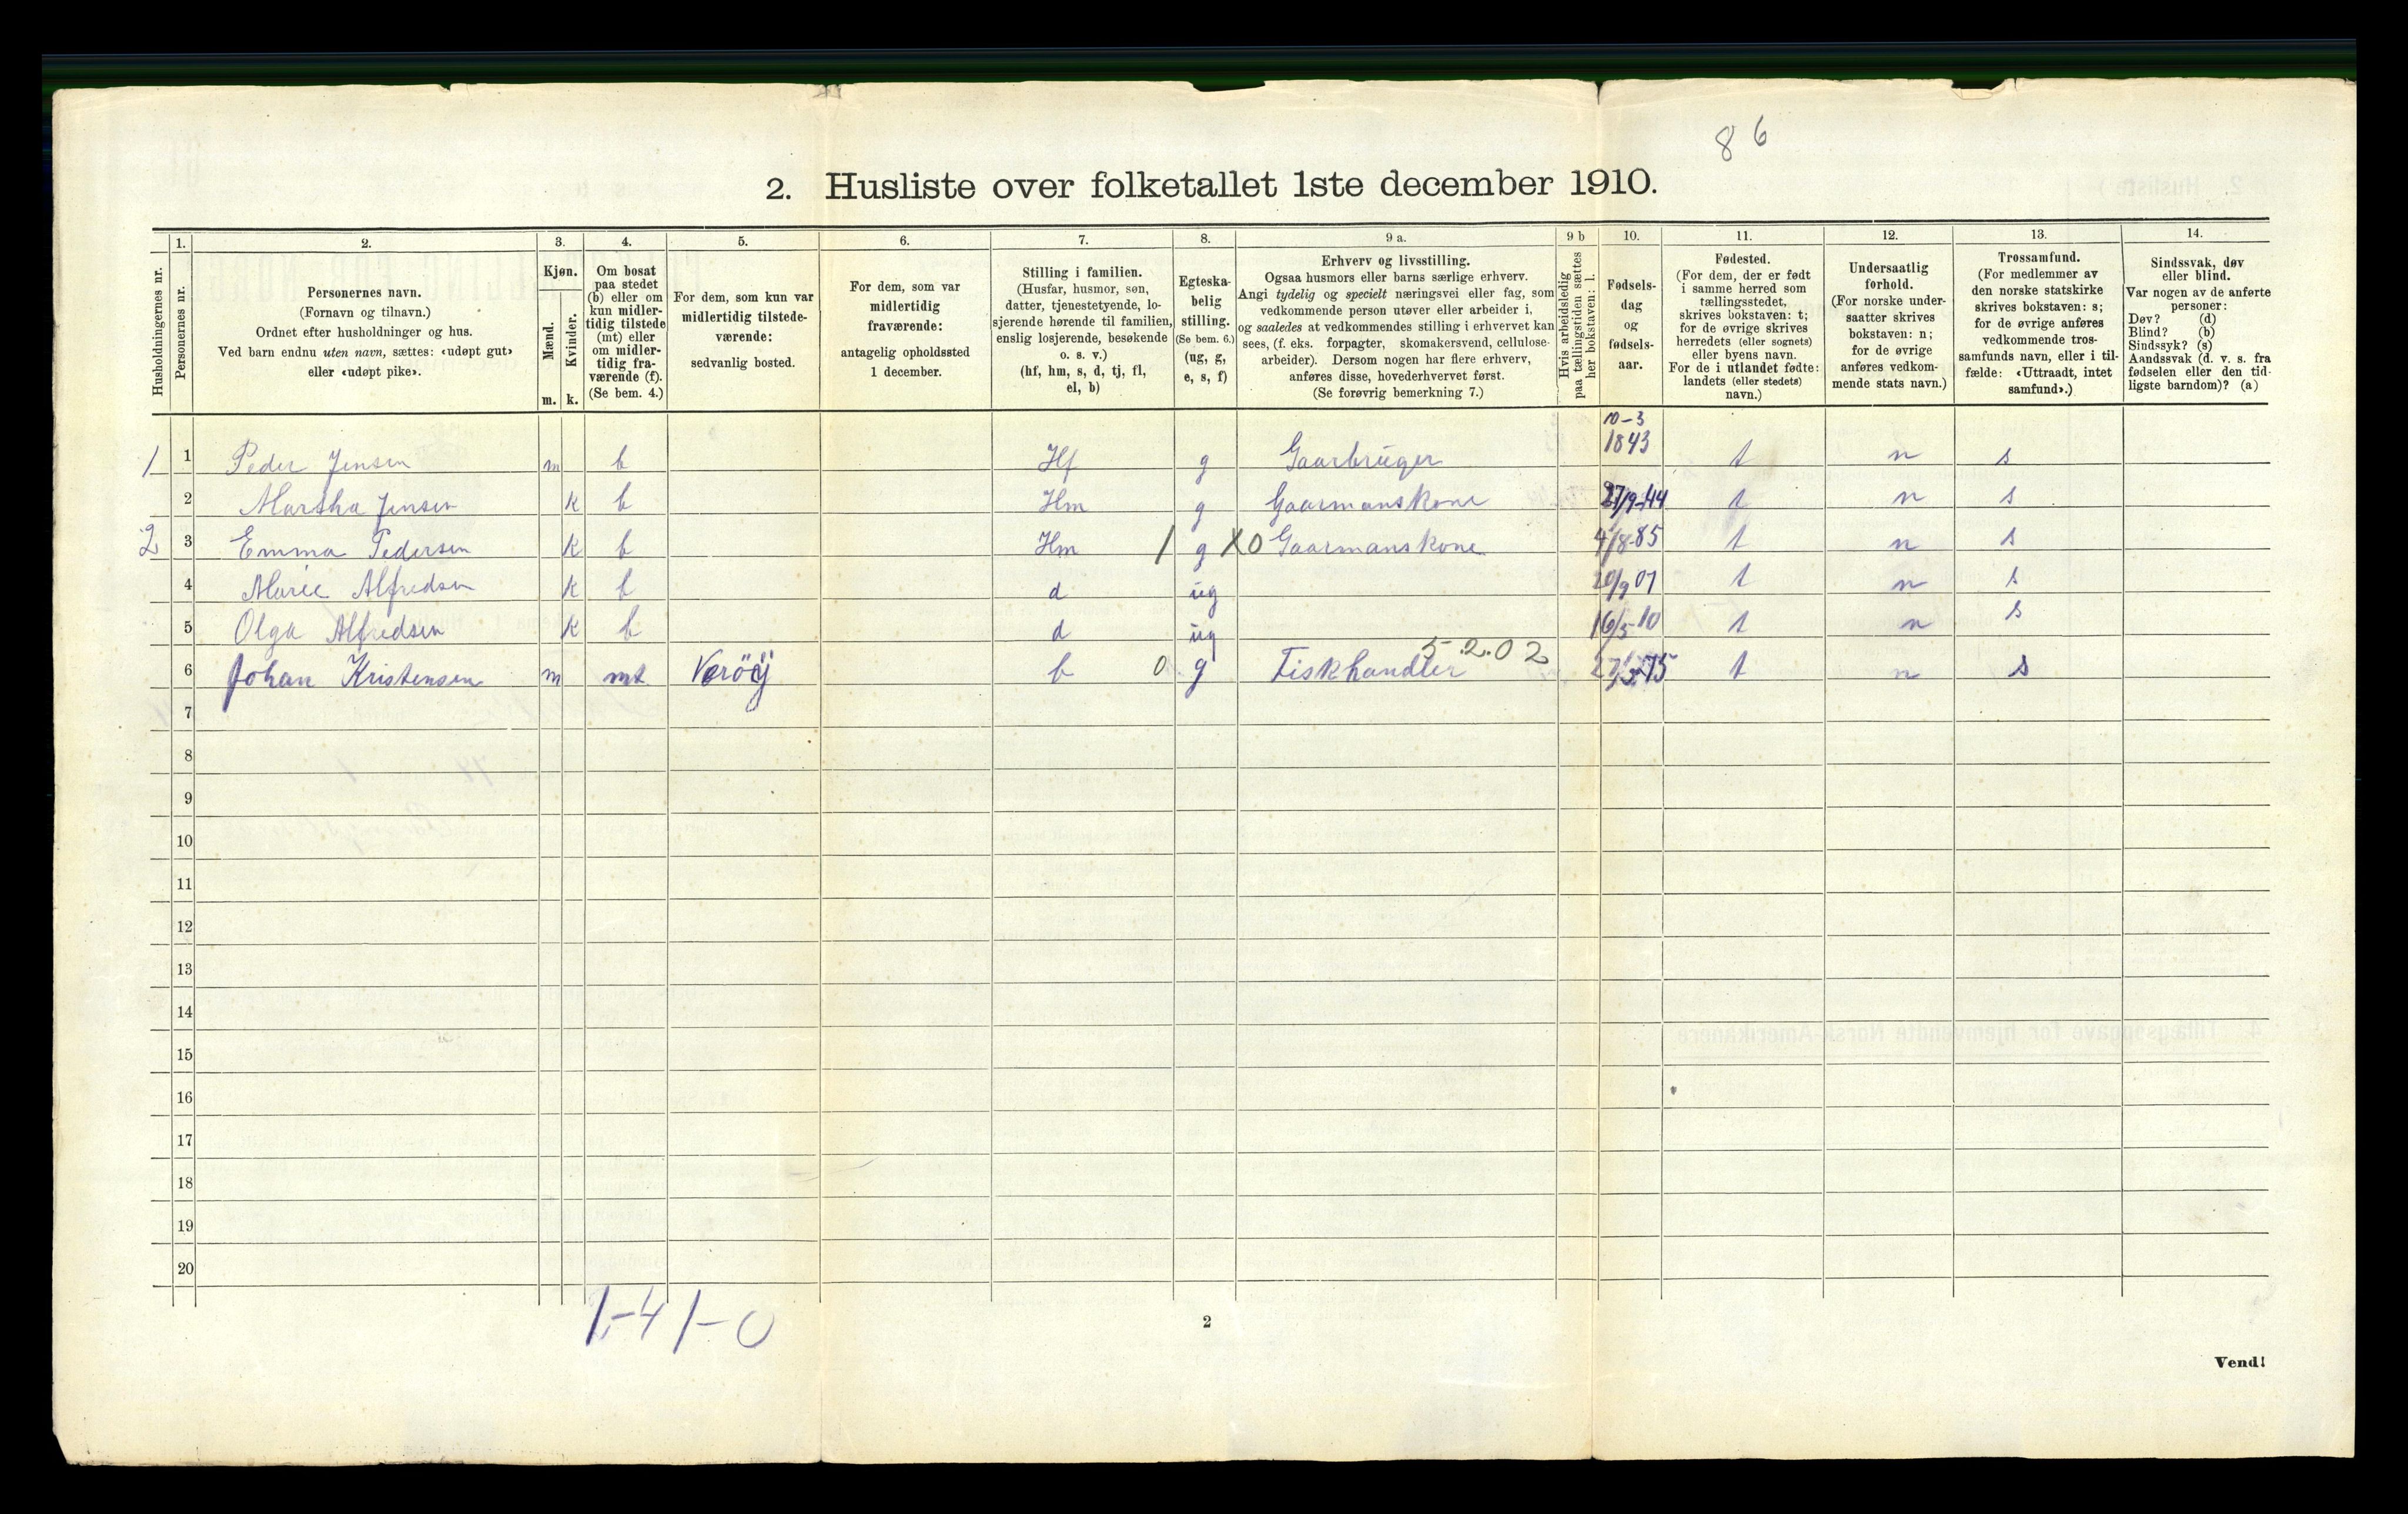 86
2. Husliste over folketallet 1ste december 1910.
Husholdningernes nr.
1.
Personernes nr.
2.
Personernes navn.
(Fornavn og tilnavn.)
Ordnet efter husholdninger og hus.
Ved barn endnu uten navn, sættes: «udøpt gut»
eller «udøpt pike».
3.
Kjøn.
Mænd.
Kvinder.
m. k.
4.
Om bosat
paa stedet
(b) eller om
kun midler-
tidig tilstede
(mt) eller
om midler-
tidig fra-
værende (f).
(Se bem. 4.)
5.
For dem, som kun var
midlertidig tilstede-
værende:
sedvanlig bosted.
6.
For dem, som var
midlertidig
fraværende:
antagelig opholdssted
1 december.
7.
Stilling i familien.
(Husfar, husmor, søn,
datter, tjenestetyende, lo-
sjerende hørende til familien,
enslig losjerende, besøkende
o. s. v.)
(hf, hm, s, d, tj, fl,
el, b)
8.
Egteska-
belig
stilling.
(Se bem. 6.)
(ug, g,
e, s, f)
9 a.
Erhverv og livsstilling.
Ogsaa husmors eller barns særlige erhverv.
Angi tydelig og specielt næringsvei eller fag, som
vedkommende person utøver eller arbeider i,
og saaledes at vedkommendes stilling i erhvervet kan
sees, (f. eks. forpagter, skomakersvend, cellulose-
arbeider). Dersom nogen har flere erhverv,
anføres disse, hovederhvervet først.
(Se forøvrig bemerkning 7.)
9 b
Hvis arbeidsledig
paa tællingstiden sættes
her bokstaven: l.
10.
Fødsels-
dag
og
fødsels-
aar.
11.
Fødested.
(For dem, der er født
i samme herred som
tællingsstedet,
skrives bokstaven: t;
for de øvrige skrives
herredets (eller sognets)
eller byens navn.
For de i utlandet fødte:
landets (eller stedets)
navn.)
12.
Undersaatlig
forhold.
(For norske under-
saatter skrives
bokstaven: n;
for de øvrige
anføres vedkom-
mende stats navn.)
13.
Trossamfund.
(For medlemmer av
den norske statskirke
skrives bokstaven: s;
for de øvrige anføres
vedkommende tros-
samfunds navn, eller i til-
fælde: «Uttraadt, intet
samfund».)
14.
Sindssvak, døv
eller blind.
Var nogen av de anførte
personer:
Døv? (d)
Blind? (b)
Sindssyk? (s)
Aandssvak (d. v. s. fra
fødselen eller den tid-
ligste barndom)? (a)
1 1 Peder Jensen m b Hf g Gaarbruger 10-3 1843 t n s
2 Martha Jensen k b Hm g Gaarmanskone 27/9-44 t n s
2 3 Emma Pedersen k b Hm / g X0 Gaarmanskone 4/8-85 t n s
4 Marie Alfredsen k b d ug 20/9 07 t n s
5 Olga Alfredsen k b d ug 16/5-10 t n s
5.2.02
6 Johan Kristensen m mt Veröÿ b 0 g Fiskhandler t n s
7
8
9
10
11
12
13
14
15
16
17
18
19
20
1-4 1-0
2
Vend!